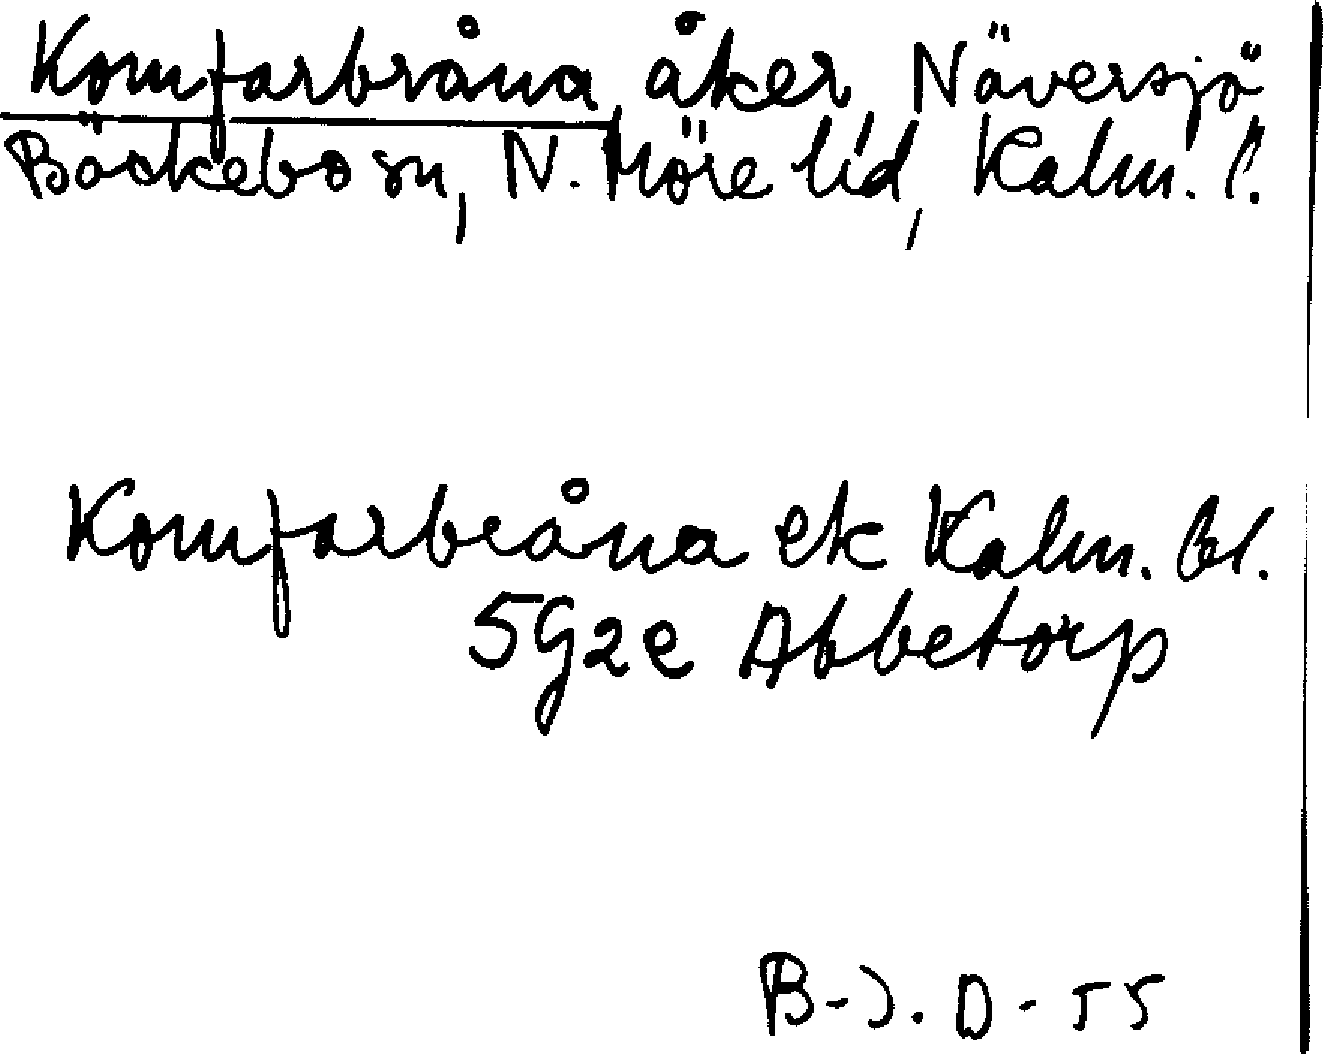 Komfarbråna, åker, Näversjö
Bäckebo sn, N. Möre hd, Kalm. l.
Komfarbråna ek Kalm. bl.
5G2e Abbetorp
B-J. D-55